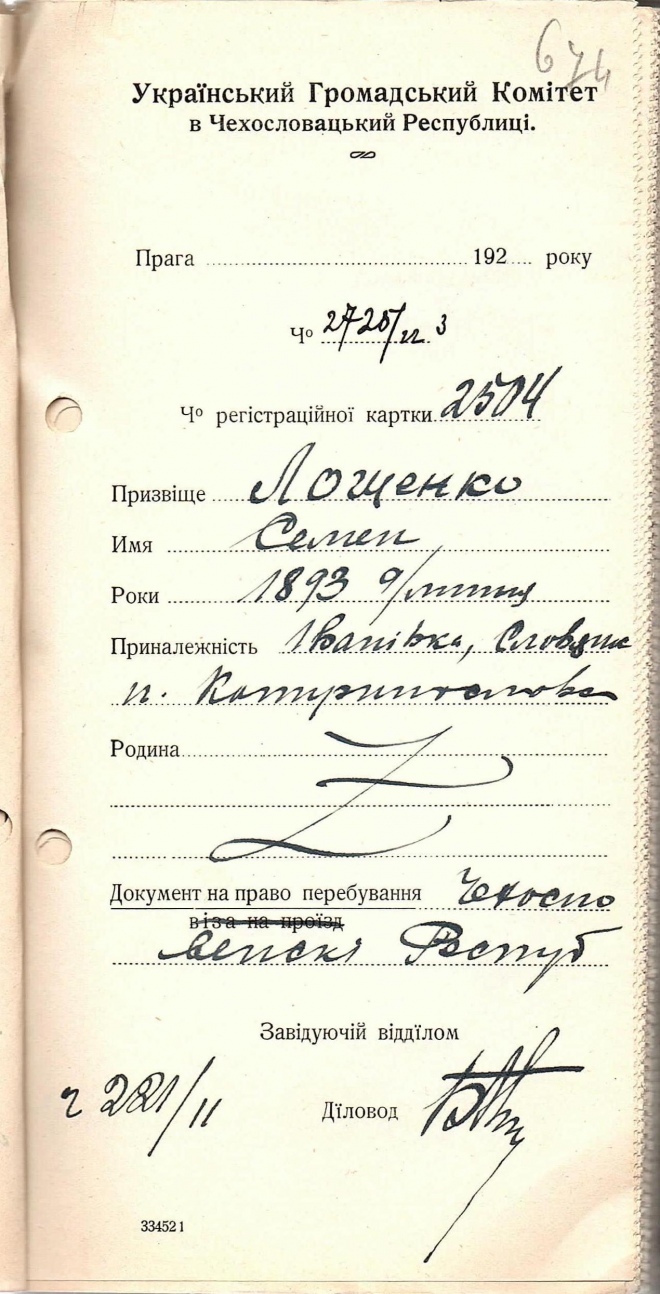 674
Український Громадський Комітет
в Чехословацький Республиці.
Прага 192 року
Чо 2725/II 3
Чо реґістраційної картки 2504
Призвіще Лощенко
Имя Семен
Роки 1893 9/липня
Приналежність Іванівка, Словянс
п. Катеринослова
Родина Z
Документ на право перебування Чехосло
віза на проїзд
венскі Респуб
Завідуючій віддїлом
ч 221/II
Дїловод
334521